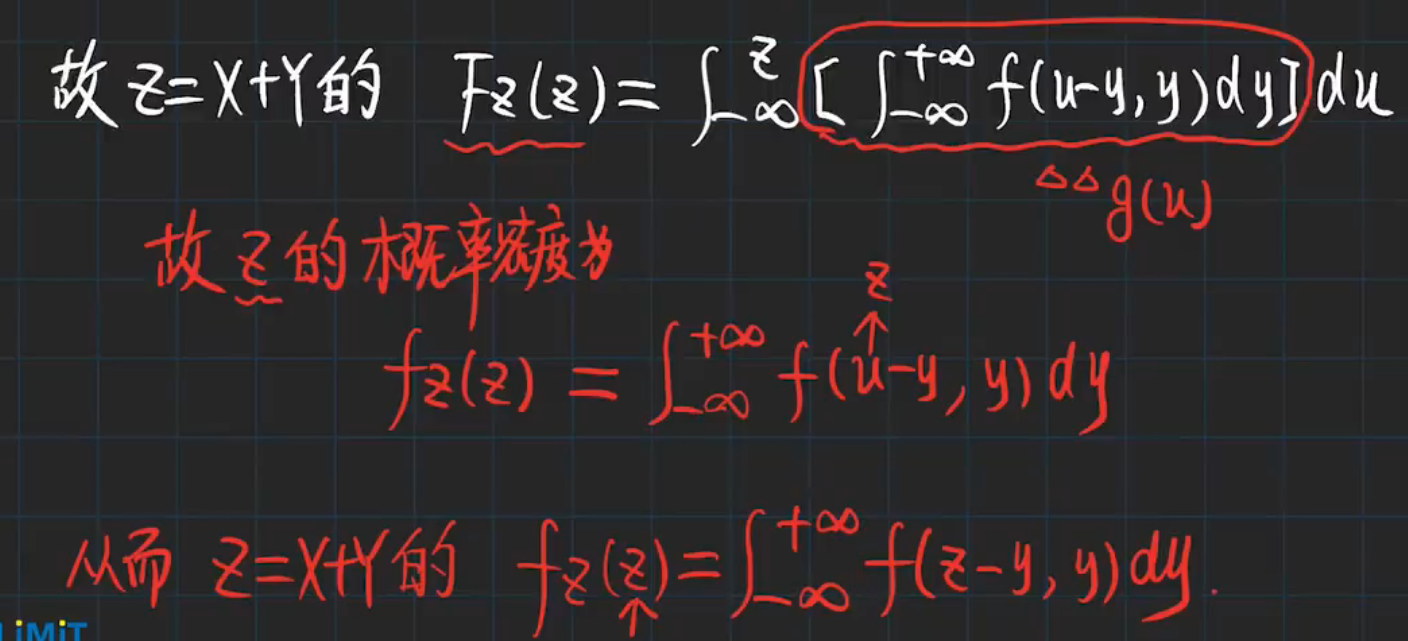 故 Z=X+Y的 F_Z(z)=∫_{-∞}^{z}[∫_{-∞}^{+∞} f(u-y,y)dy]du
△△ g(u)
故 Z 的概率密度为
z
↑
f_Z(z)=∫_{-∞}^{+∞} f(u-y,y)dy
从而 Z=X+Y的 f_Z(z)=∫_{-∞}^{+∞} f(z-y,y)dy.
↑
LiMiT